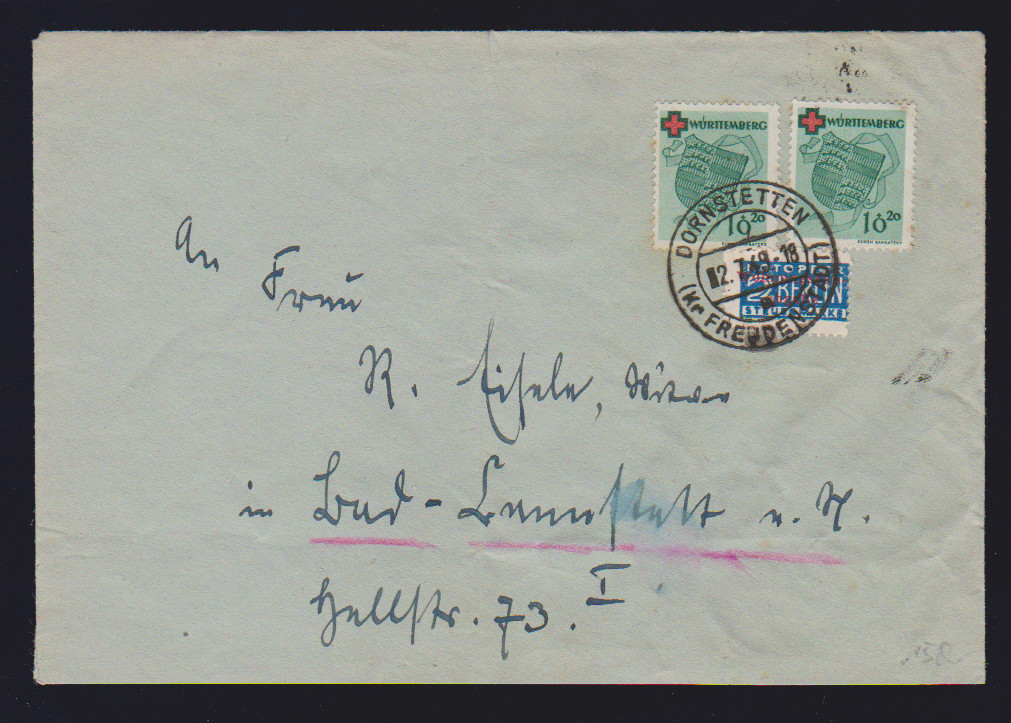 WÜRTTEMBERG
10+20
WÜRTTEMBERG
10+20
DORNSTETTEN
2.7.49.-18
(Kr FREUDENSTADT)
NOTOPFER
2 BERLIN
STEUERMARKE
An
Frau
R. Eisele, Witwe
in Bad-Cannstatt a. N.
Hallstr. 73. I